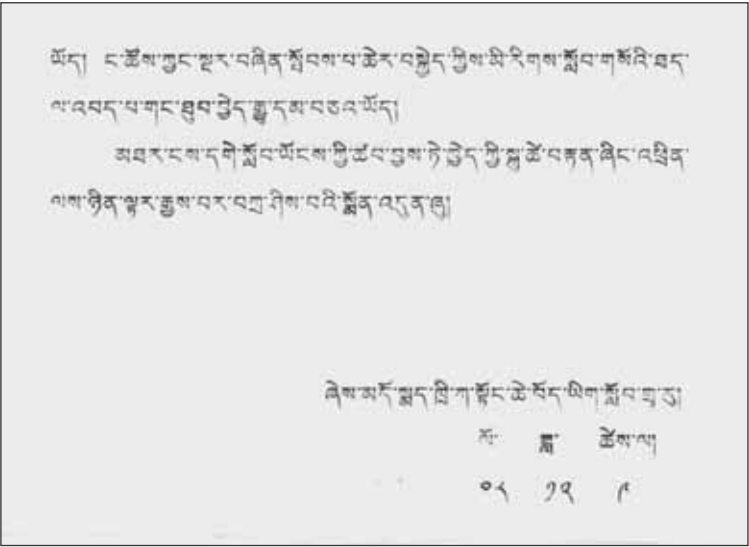 ཡོད། ང་ཚོས་ཀྱང་སྔར་བཞིན་སྤོབས་པ་ཆེར་བསྐྱེད་ཀྱིས་མི་རིགས་སློབ་གསོའི་ཐད་
ལ་འབད་པ་གང་ཐུབ་བྱེད་རྒྱུ་དམ་བཅའ་ཡོད།
མཐར་ངས་དགེ་སློབ་ཡོངས་ཀྱི་ཚབ་བྱས་ཏེ་ཁྱེད་ཀྱི་སྐུ་ཚེ་བརྟན་ཞིང་འཕྲིན་
ལས་ཉིན་ལྟར་རྒྱས་པར་བཀྲ་ཤིས་པའི་སྨོན་འདུན་ཞུ།
ཞེས་མདོ་སྨད་ཁྲི་ཀ་སྟོང་ཆེ་བོད་ཡིག་སློབ་གྲྭ་རུ།
ལོ་ ཟླ་ ཚེས་ལ།
༠༨ ༡༢ ༩